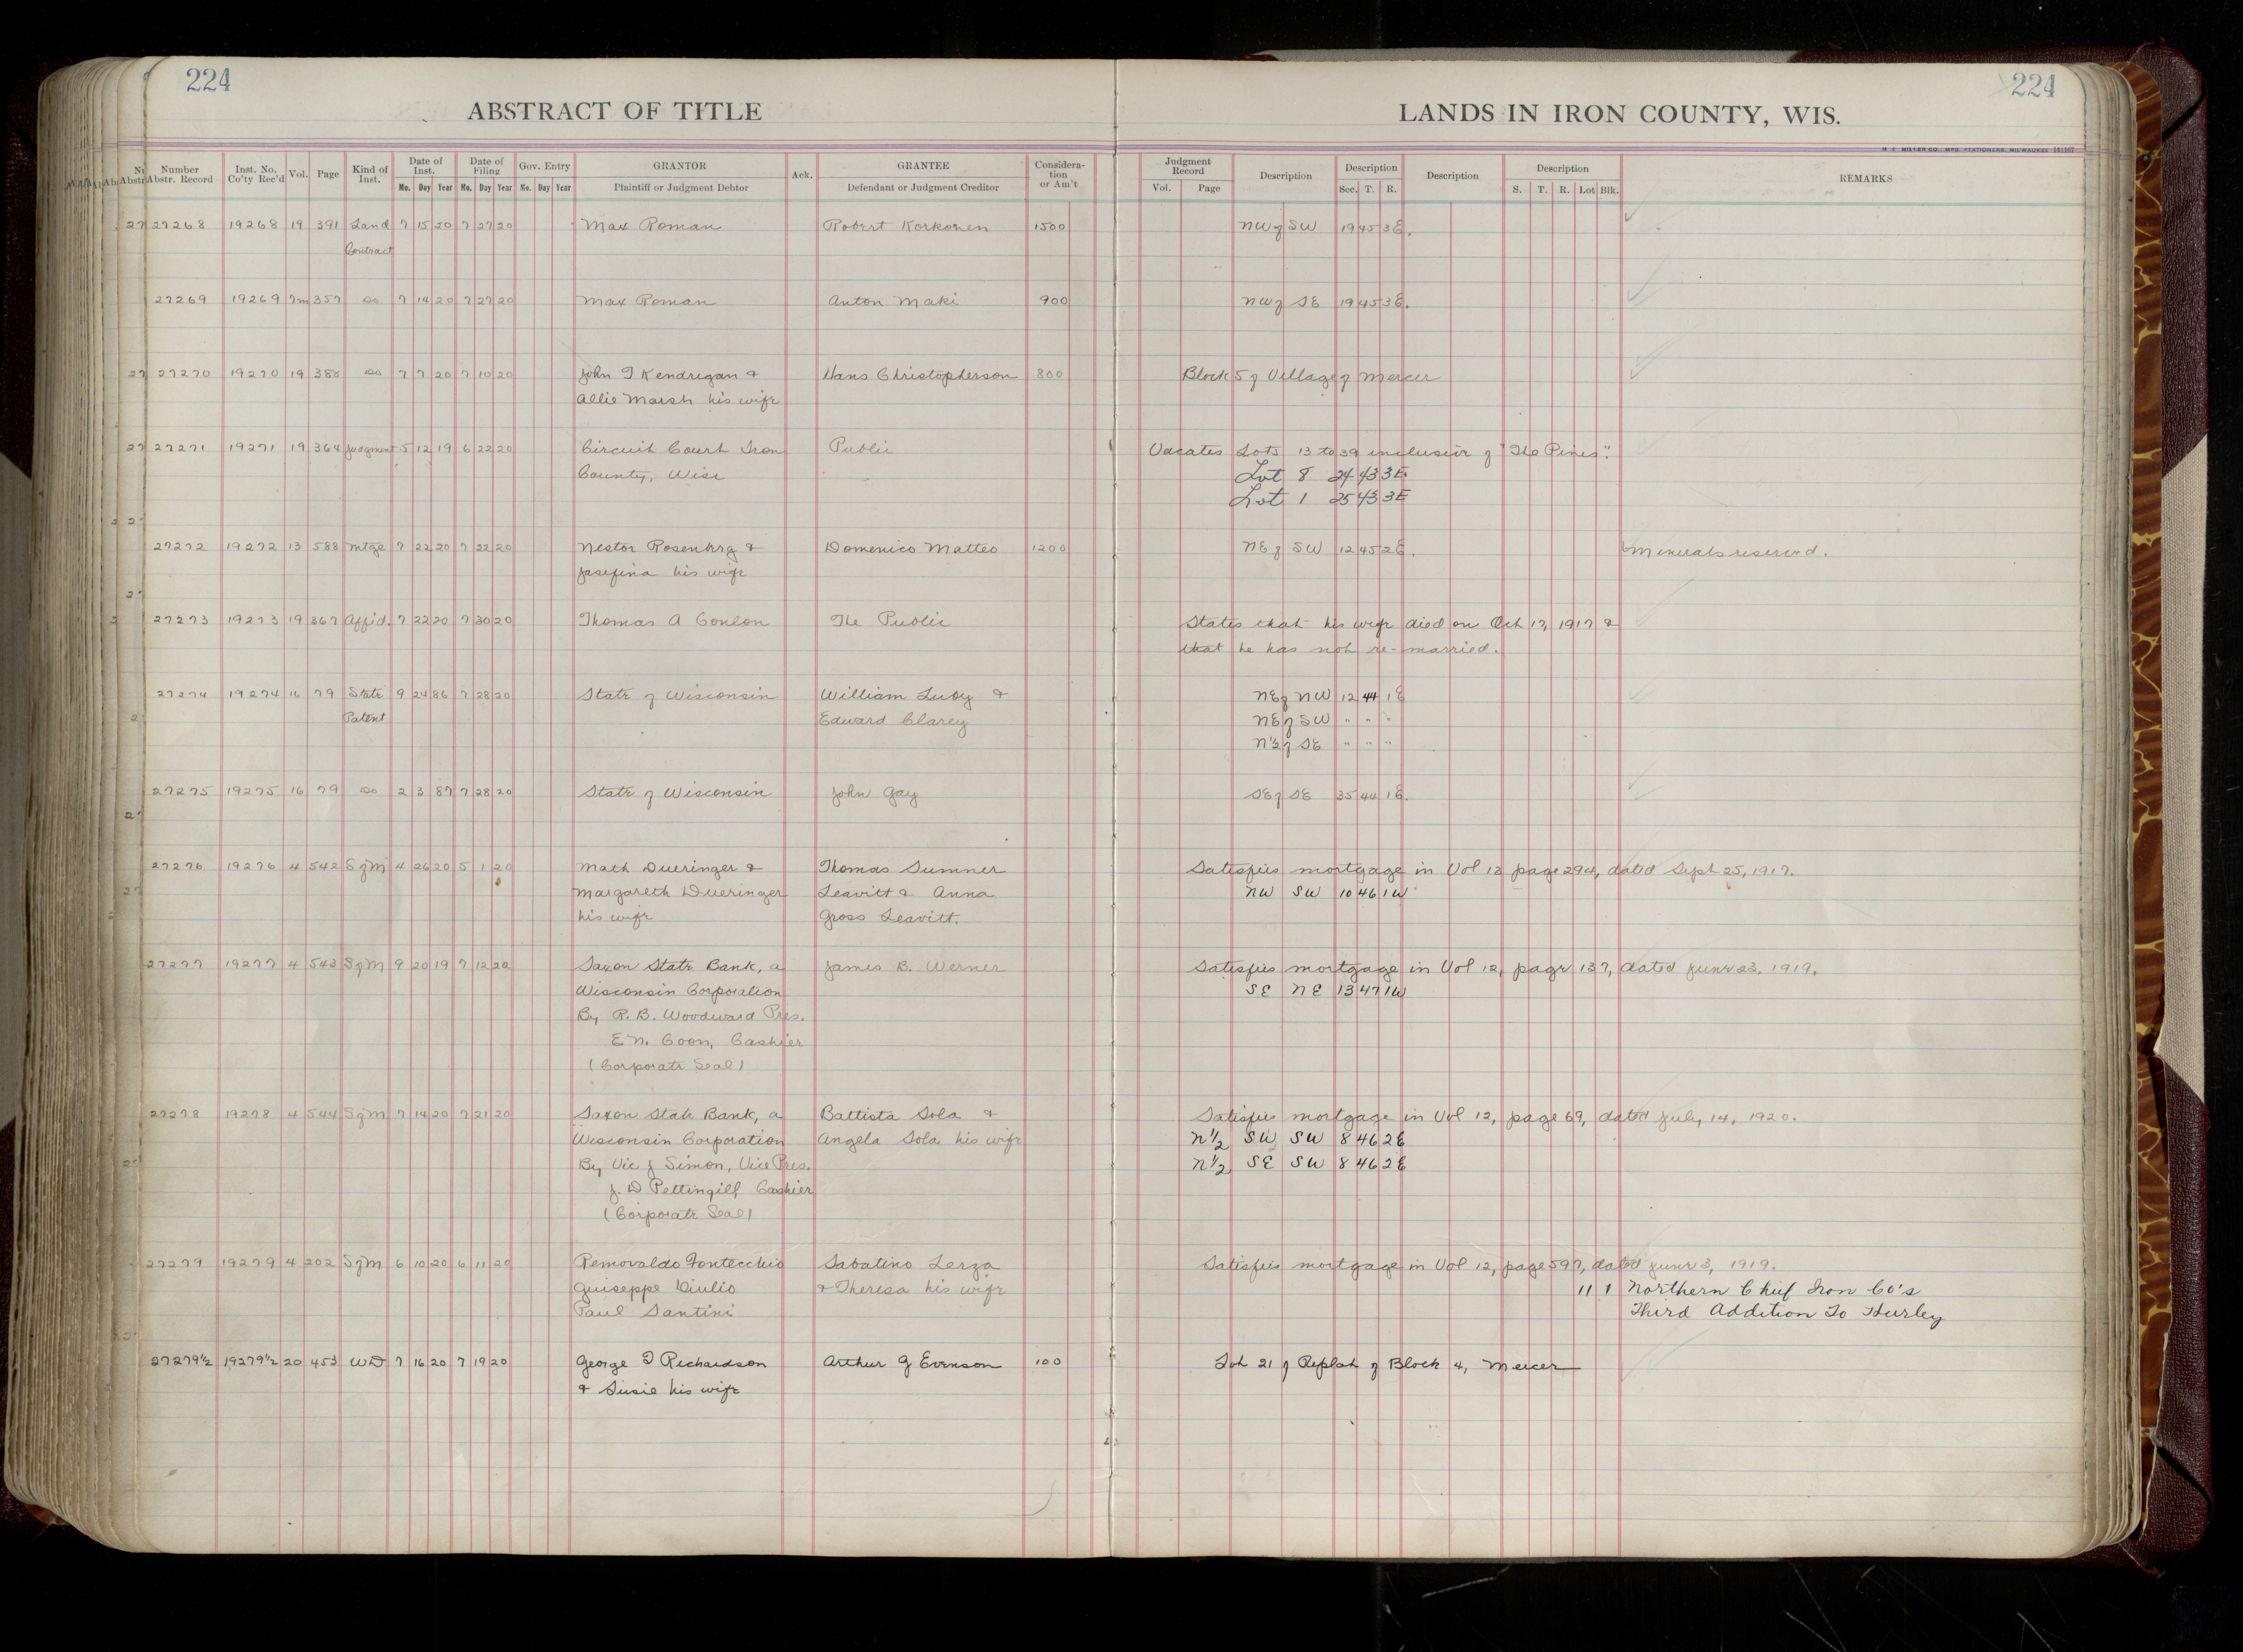 224
224
ABSTRACT OF TITLE
LANDS IN IRON COUNTY, WIS.
M. E. MILLER CO., MFG. STATIONERS, MILWAUKEE
Number Abstr. Record Inst. No. Co'ty Rec'd Vol. Page Kind of Inst. Date of Inst. Mo. Day Year Date of Filing Mo. Day Year Gov. Entry Mo. Day Year GRANTOR Plaintiff or Judgment Debtor Ack. GRANTEE Defendant or Judgment Creditor Considera-tion or Am't Judgment Record Vol. Page Description Description Sec. T. R. Description Description S. T. R. Lot Blk. REMARKS
27268 19268 19 391 Land 7 15 20 7 27 20 Max Roman Robert Korkonen 1500 NW of SW 19 45 3E.
Contract
27269 19269 7m 357 do 7 14 20 7 27 20 Max Roman Anton Maki 900 NW of SE 19 45 3E.
27270 19270 19 388 do 7 7 20 7 10 20 John T Kendrigan & Hans Christopherson 800 Block 5 of Village of Mercer
Allie Marsh his wife
27271 19271 19 364 Judgment 5 12 19 6 22 20 Circuit Court Iron Public Vacates Lots 13 to 39 inclusive of "The Pines".
County, Wisc Lot 8 24 43 3E.
Lot 1 25 43 3E
27272 19272 13 588 Mtge 7 22 20 7 22 20 Nestor Rosenbrg & Domenico Matteo 1200 NE of SW 12 45 2E. Minerals reserved.
Josefina his wife
27273 19273 19 367 Affid. 7 22 20 7 30 20 Thomas A Conlon The Public States that his wife died on Oct 17, 1917 &
that he has not re-married.
27274 19274 16 79 State 9 24 86 7 28 20 State of Wisconsin William Luby & NE of NW 12 44 1E
Patent Edward Clarey NE of SW " " "
N½ of SE " " "
27275 19275 16 79 do 2 3 87 7 28 20 State of Wisconsin John Gay SE of SE 35 44 1E.
27276 19276 4 542 S of M 4 26 20 5 1 20 Math Dueringer & Thomas Sumner Satisfies mortgage in Vol 12 page 294, dated Sept 25, 1917.
Margareth Dueringer Leavitt & Anna NW SW 10 46 1W
his wife Gross Leavitt.
27277 19277 4 543 S of M 9 20 19 7 12 20 Saxon State Bank, a James B. Werner Satisfies mortgage in Vol 12, page 137, dated June 23, 1919.
Wisconsin Corporation SE NE 13 47 1W
By R. B. Woodward Pres.
E N. Coon, Cashier
(Corporate Seal)
27278 19278 4 544 S of M 7 14 20 7 21 20 Saxon State Bank, a Battista Sola & Satisfies mortgage in Vol 12, page 69, dated July, 14, 1920.
Wisconsin Corporation Angela Sola his wife N½ SW SW 8 46 2E
By Vic J Simon, Vice Pres. N½ SE SW 8 46 2E
J. D Pettingill Cashier
(Corporate Seal)
27279 19279 4 202 S of M 6 10 20 6 11 20 Removaldo Fontecchio Sabatino Lerza Satisfies mortgage in Vol 12, page 597, dated June 3, 1919.
Guiseppe Giulio & Theresa his wife 11 1 Northern Chief Iron Co's
Paul Santini Third Addition To Hurley
27279½ 19279½ 20 453 WD 7 16 20 7 19 20 George T Richardson Arthur G Evenson 100 Lot 21 of Replat of Block 4, Mercer
& Susie his wife